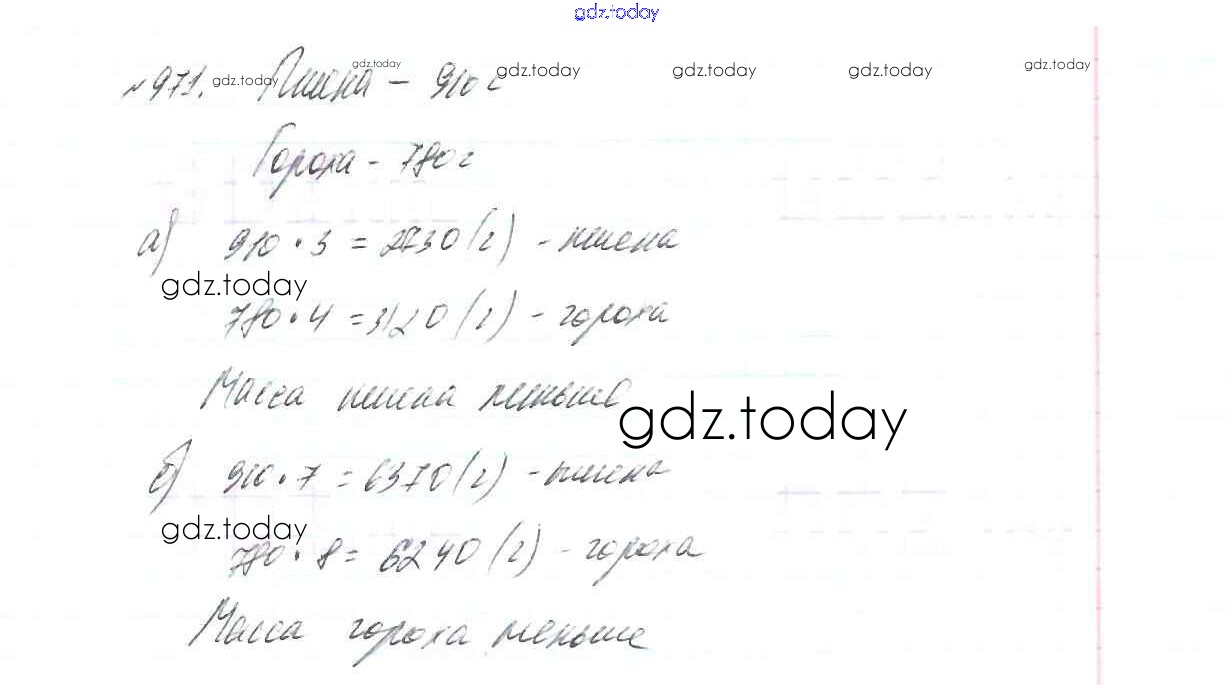 gdz.today
№971. gdz.today Пшена - 910 г gdz.today gdz.today gdz.today gdz.today gdz.today
Гороха - 780 г
а) 910 · 3 = 2730 (г) - пшена
gdz.today
780 · 4 = 3120 (г) - гороха
Масса пшена меньше
gdz.today
б) 910 · 7 = 6370 (г) - пшена
gdz.today
780 · 8 = 6240 (г) - гороха
Масса гороха меньше